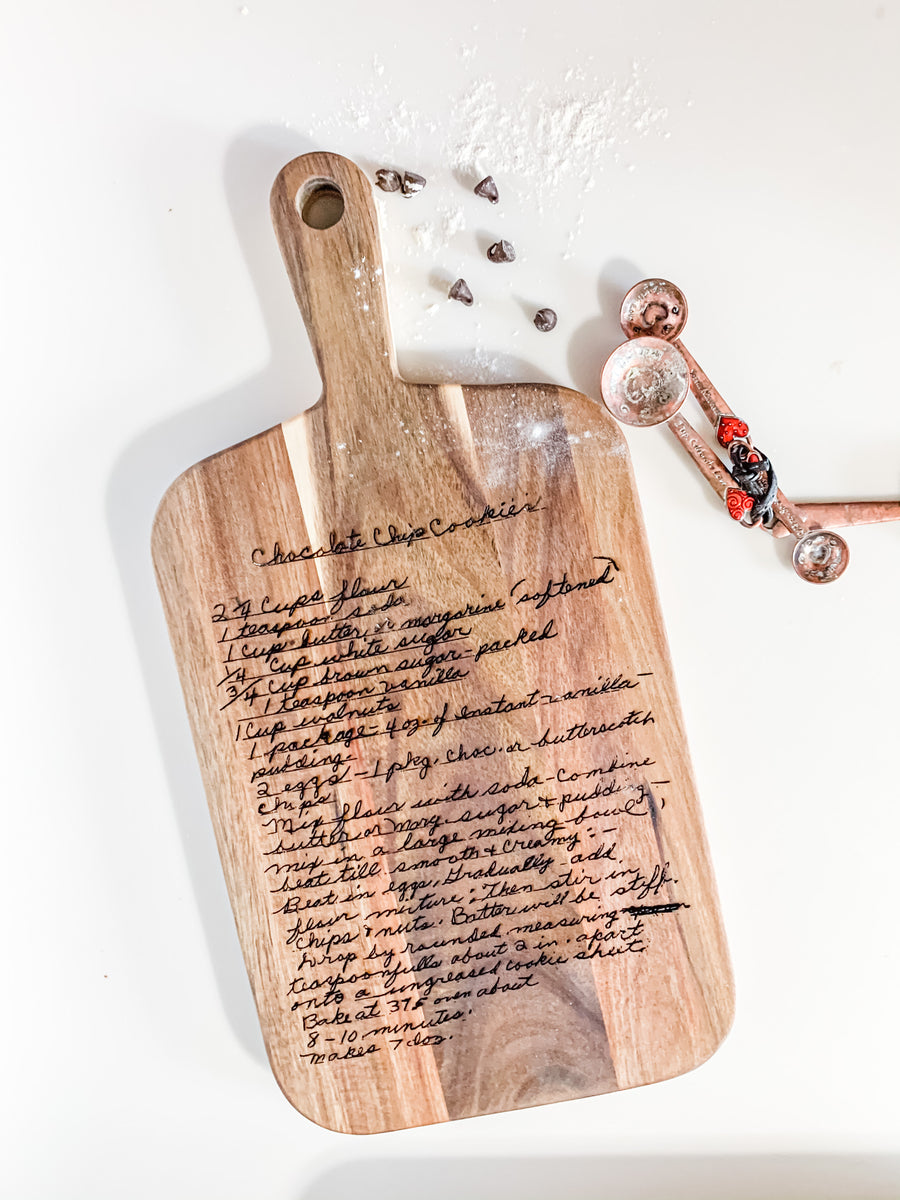 Chocolate Chip Cookies
2 1/4 Cups flour
1 teaspoon soda
1 Cup butter or margarine (softened)
1/4 Cup white suglar
3/4 Cup brown sugar - packed
1 teaspoon vanilla
1 Cup walnuts
1 package - 4 oz. of Instant - vanilla -
pudding -
2 eggs - 1 pkg. choc. or butterscotch
chips
Mix flour with soda - Combine
butter or marg. sugar & pudding -
mix in a large mixing bowl,
beat till smooth & creamy. -
Beat in eggs, Gradually - add
flour mixture; Then stir in
chips & nuts. Batter will be stiff.
Drop by rounded measuring
teaspoonfulls about 2 in. apart
onto a ungreased cookie sheet
Bake at 375 oven about
8-10 minutes.
makes 7 doz.